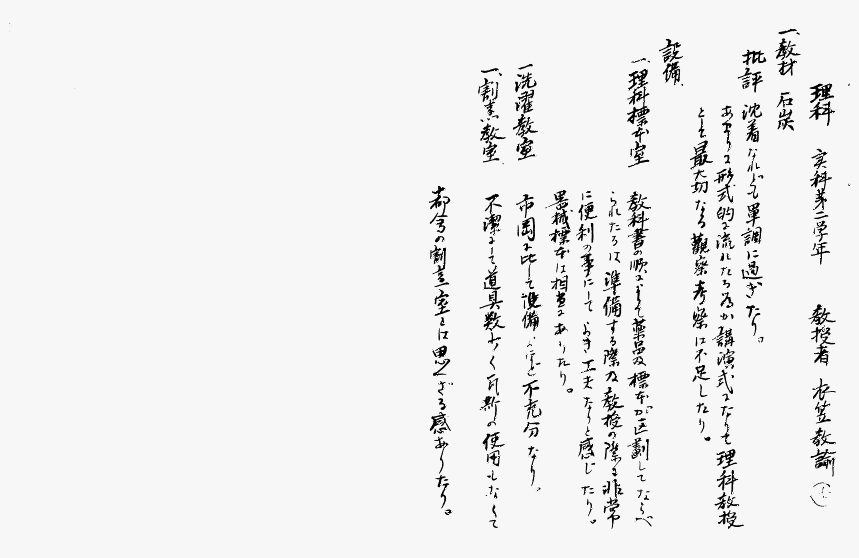 理科　実科第二学年　教授者　衣笠教諭
一、教材　石炭
批評　沈着なれども単調に過ぎたり。
あまりに形式的に流れたる為か講演式になりて理科教授
として最大切なる観察考察は不足したり。
設備
一、理科標本室　教科書の順によりて薬品及標本が区劃してならべ
られたるは準備する際及教授の際に非常
に便利の事にしてよき工夫なりと感じたり。
器械標本は相当にありたり。
一、洗濯教室　市岡に比して設備不充分なり。
一、割烹教室　不潔にして道具数少く瓦斯の使用もなくて
都会の割烹室とは思へざる感ありたり。